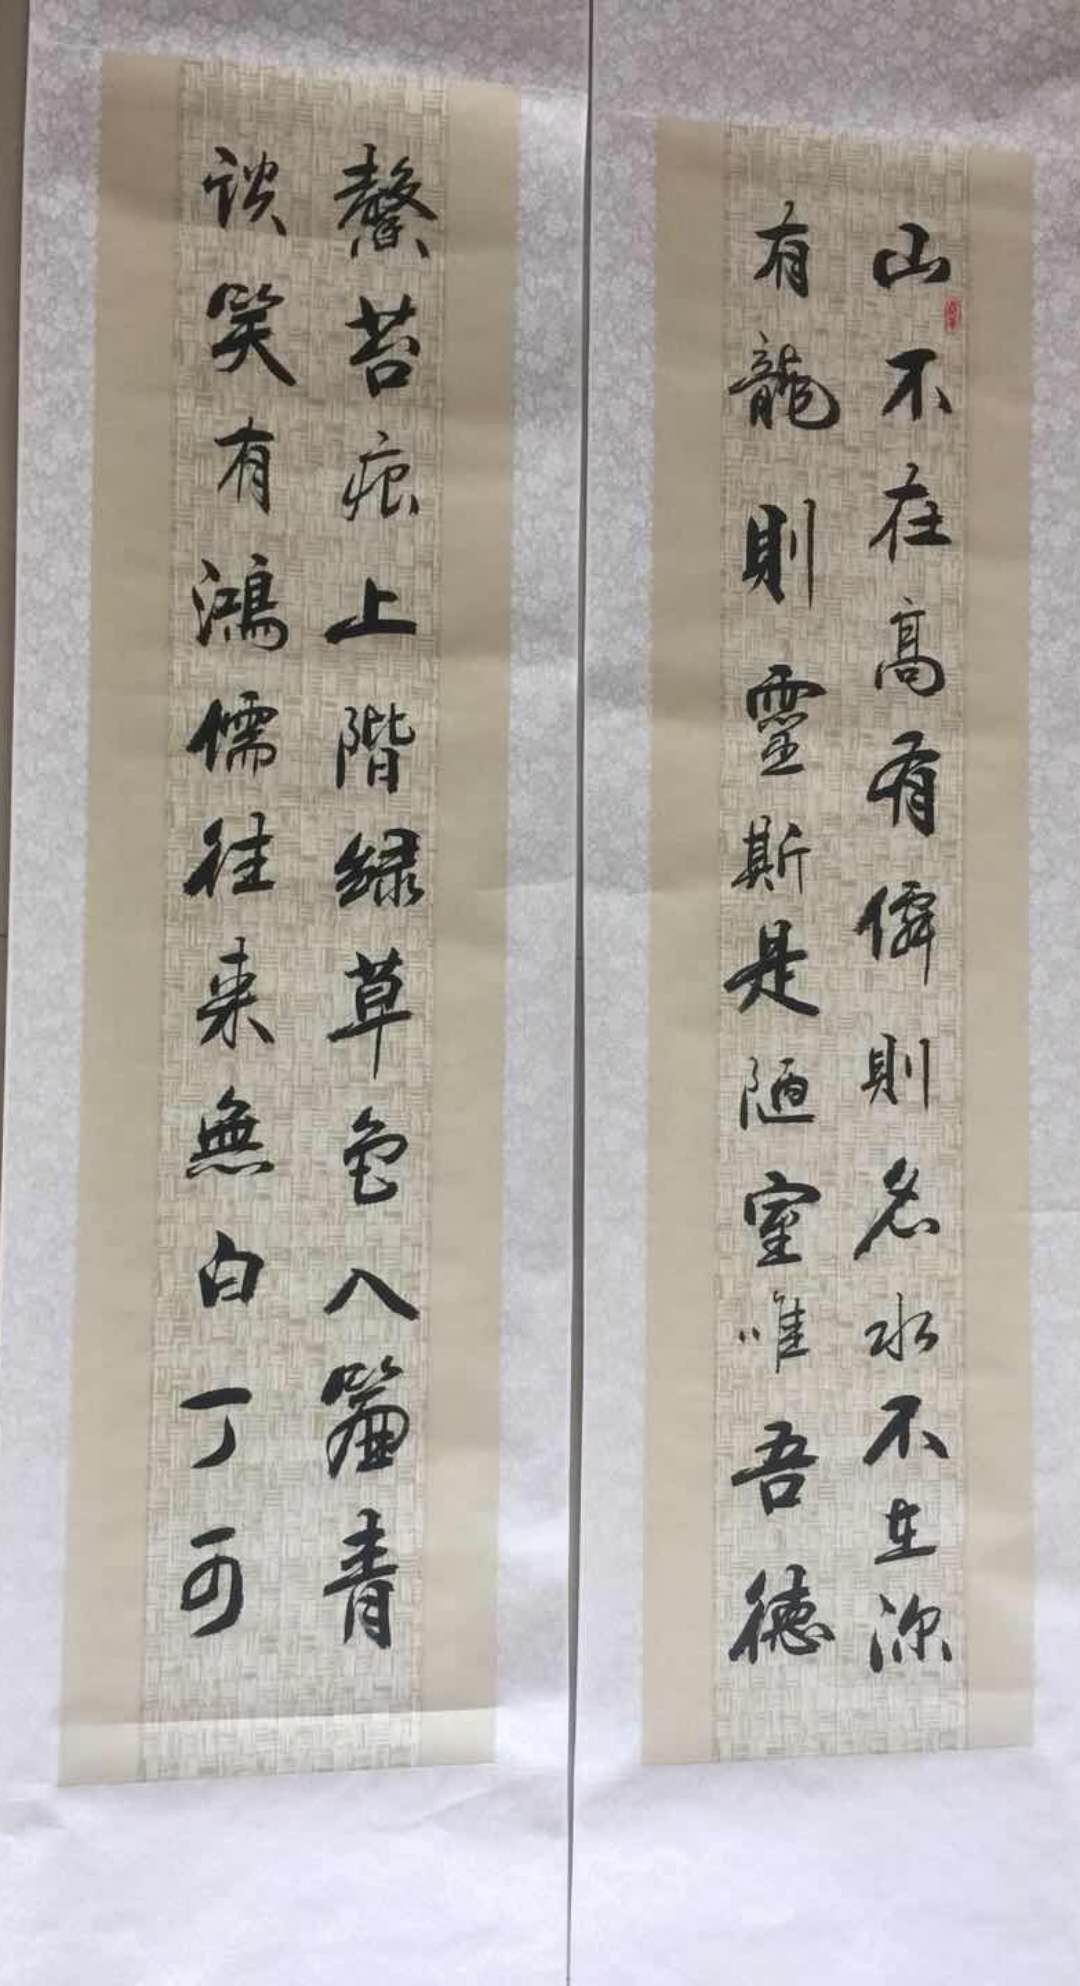 山不在高有僊則名水不在深
有龍則靈斯是陋室唯吾德
馨苔痕上階緑草色入簾青
談笑有鴻儒往来無白丁可